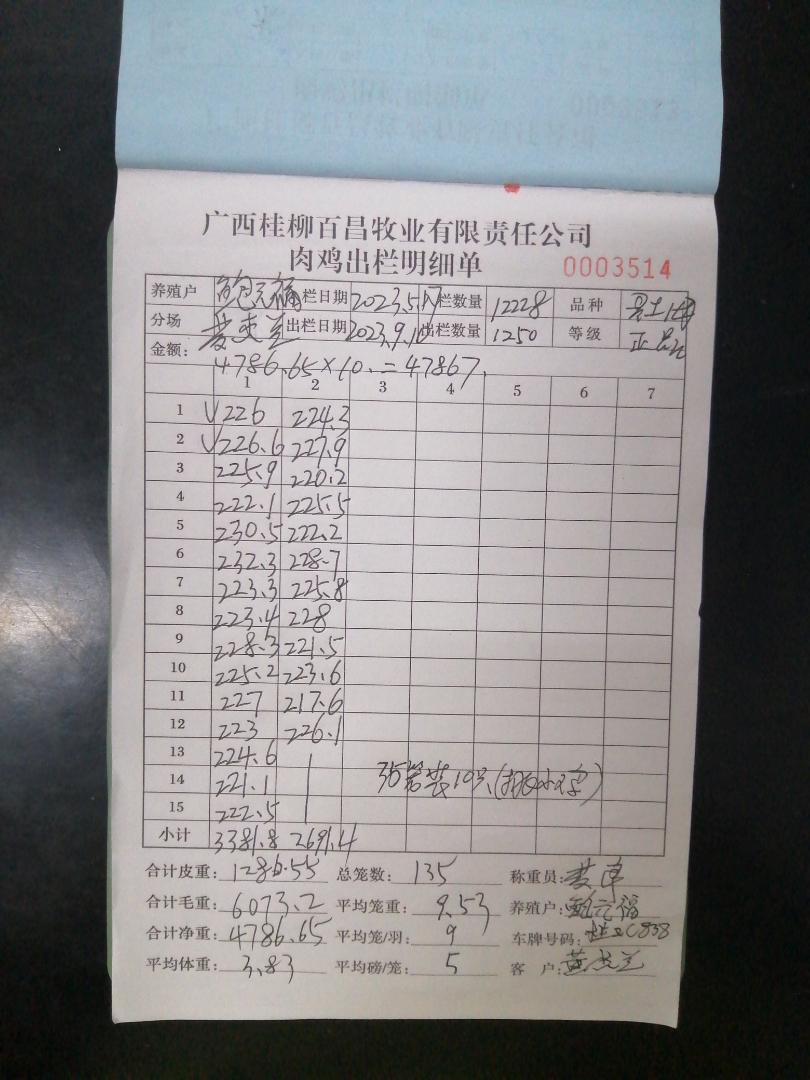 广西桂柳百昌牧业有限责任公司
肉鸡出栏明细单 0003514
养殖户 鲍元福 栏日期 2023.5.17 栏数量 12228 品种
分场 出栏日期 2023.9.16 出栏数量 1250 等级 正品
金额: 4786.65×10.=47867.
1 2 3 4 5 6 7
1 √226 224.3
2 √226.6 227.9
3 225.9 220.2
4 222.1 225.5
5 230.5 222.2
6 232.3 228.7
7 223.3 225.8
8 223.4 228
9 228.3 221.5
10 225.2 223.6
11 227 217.6
12 223 226.1
13 224.6
14 221.1 35笼装10只
15 222.5
小计 3381.8 2691.4
合计皮重: 1286.55 总笼数: 135 称重员:
合计毛重: 6073.2 平均笼重: 9.53 养殖户: 鲍元福
合计净重: 4786.65 平均笼/羽: 9 车牌号码: 桂 C838
平均体重: 3.83 平均磅/笼: 5 客 户: